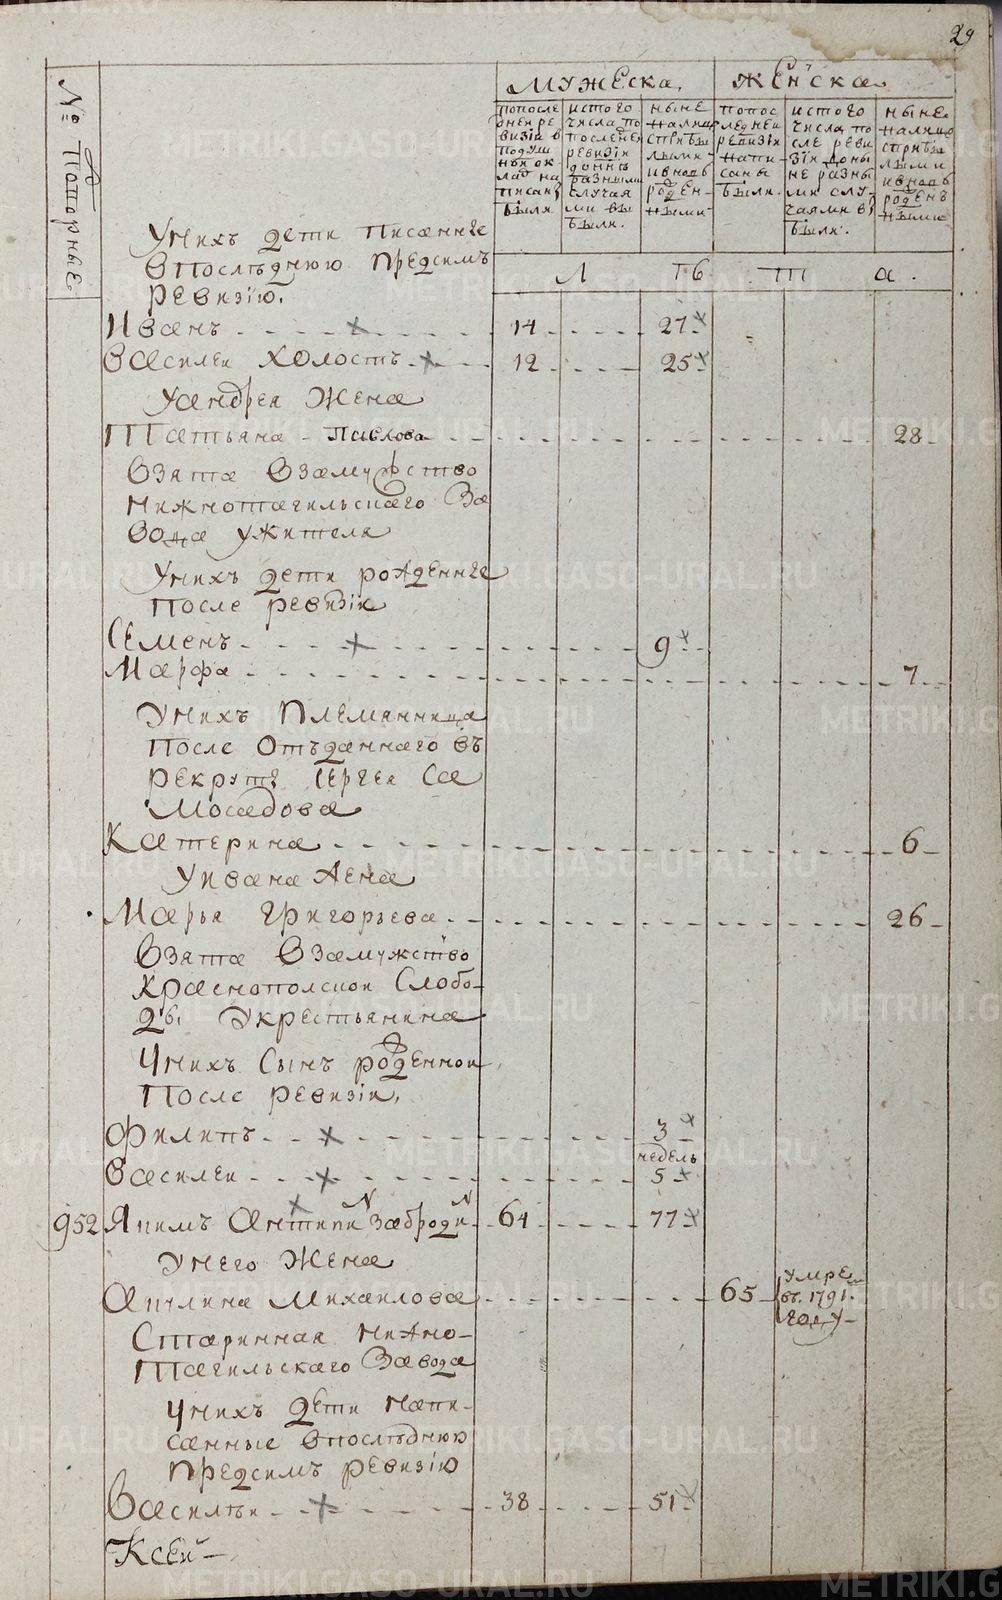 29
№ Подворные
МУЖЕСКА.
ЖЕНСКА.
попосле
дней ре
визіи в
подуш
ный ок
лад на
писан
были
истого
числа по
последней
ревизіи
донне
разными
случая
ми вы
были.
ныне
налицо
сприбы
лыми
ивновь
рожден
ными
попос
ледней
ревизіи
напи
саны
были.
истого
числа по
сле реви
зіи доны
не разны
ми слу
чаями вы
были.
ныне
налицо
сприбы
лыми
ивновь
рожденъ
ными
Л ТЪ Т А.
Унихъ дети писанніе
впоследнюю предсимъ
ревизію.
Иванъ 14 27
Василеи холостъ 12 25
Уандрея жена
Татьяна Павлова 28
взята взамужство
нижнотагильскаго за
вода ужителя
Унихъ дети рожденніе
после ревизіи
Семенъ 9
Марфа 7
Унихъ племянница
после отъданнаго въ
рекруты Сергея Са
мосадова
Катерина 6
Уивана жена
Марья григорьева 26
взята взамужство
краснополскои Слобо-
ды укрестьянина
Унихъ сынъ рожденнои
после ревизіи,
Филипъ 3
недель
Василеи 5
952 Якимъ Антипи забродин 64 77
Унего жена
Акулина михаилова 65 умре
въ 1791
году
Старинная нижно-
тагильскаго завода
Унихъ дети напи-
санные впоследнюю
предсимъ ревизію
Василеи 38 51
Ксеи-
METRIKI.GASO-URAL.RU